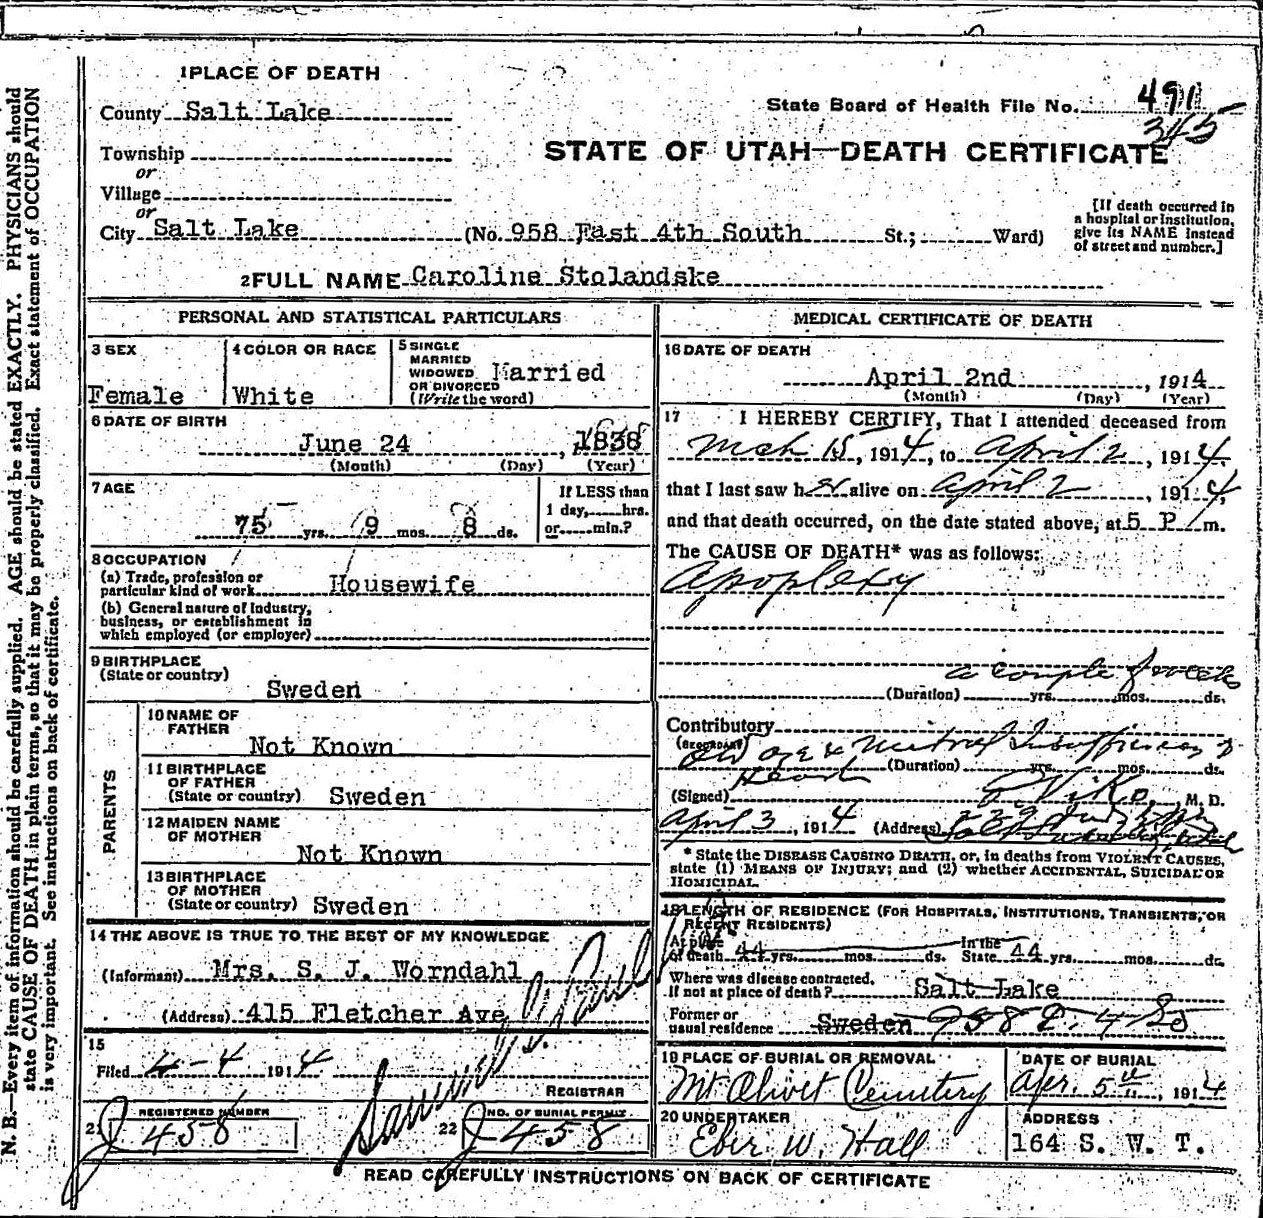 1 PLACE OF DEATH
County Salt Lake
State Board of Health File No. 491
345
Township
or
Village
or
City Salt Lake (No. 958 East 4th South St.; Ward)
STATE OF UTAH—DEATH CERTIFICATE
[If death occurred in
a hospital or institution,
give its NAME instead
of street and number.]
2 FULL NAME Caroline Stolandske
PERSONAL AND STATISTICAL PARTICULARS
3 SEX
Female
4 COLOR OR RACE
White
5 SINGLE
MARRIED
WIDOWED
OR DIVORCED
(Write the word)
Married
6 DATE OF BIRTH
June 24, 1838
(Month) (Day) (Year)
7 AGE
75 yrs. 9 mos. 8 ds.
If LESS than
1 day, hrs.
or min.?
8 OCCUPATION
(a) Trade, profession or
particular kind of work Housewife
(b) General nature of Industry,
business, or establishment in
which employed (or employer)
9 BIRTHPLACE
(State or country)
Sweden
PARENTS
10 NAME OF
FATHER
Not Known
11 BIRTHPLACE
OF FATHER
(State or country) Sweden
12 MAIDEN NAME
OF MOTHER
Not Known
13 BIRTHPLACE
OF MOTHER
(State or country) Sweden
14 THE ABOVE IS TRUE TO THE BEST OF MY KNOWLEDGE
(Informant) Mrs. S. J. Worndahl
(Address) 415 Fletcher Ave
15
Filed 4-4 1914
REGISTRAR
21 REGISTERED NUMBER
J 458
22 NO. OF BURIAL PERMIT
J 458
MEDICAL CERTIFICATE OF DEATH
16 DATE OF DEATH
April 2nd, 1914
(Month) (Day) (Year)
17 I HEREBY CERTIFY, That I attended deceased from
Mch 15, 1914, to April 2, 1914,
that I last saw her alive on April 2, 1914,
and that death occurred, on the date stated above, at 5 P m.
The CAUSE OF DEATH* was as follows:
Apoplexy
a couple of weeks
(Duration) yrs. mos. ds.
Contributory
(SECONDARY)
Old age & Mitral Insufficiency
Heart
(Duration) yrs. mos. ds.
(Signed) M. D.
April 3, 1914 (Address)
* State the DISEASE CAUSING DEATH, or, in deaths from VIOLENT CAUSES,
state (1) MEANS OF INJURY; and (2) whether ACCIDENTAL, SUICIDAL OR
HOMICIDAL.
18 LENGTH OF RESIDENCE (FOR HOSPITALS, INSTITUTIONS, TRANSIENTS, OR
RECENT RESIDENTS)
At place
of death 44 yrs. mos. ds. In the
State 44 yrs. mos. ds.
Where was disease contracted,
If not at place of death? Salt Lake
Former or
usual residence Sweden 958 E. 4 So
19 PLACE OF BURIAL OR REMOVAL
Mt Olivet Cemetery
DATE OF BURIAL
Apr. 5th, 1914
20 UNDERTAKER
Eber W. Hall
ADDRESS
164 S. W. T.
READ CAREFULLY INSTRUCTIONS ON BACK OF CERTIFICATE
N. B.—Every item of information should be carefully supplied. AGE should be stated EXACTLY. PHYSICIANS should
state CAUSE OF DEATH in plain terms, so that it may be properly classified. Exact statement of OCCUPATION
is very important. See instructions on back of certificate.